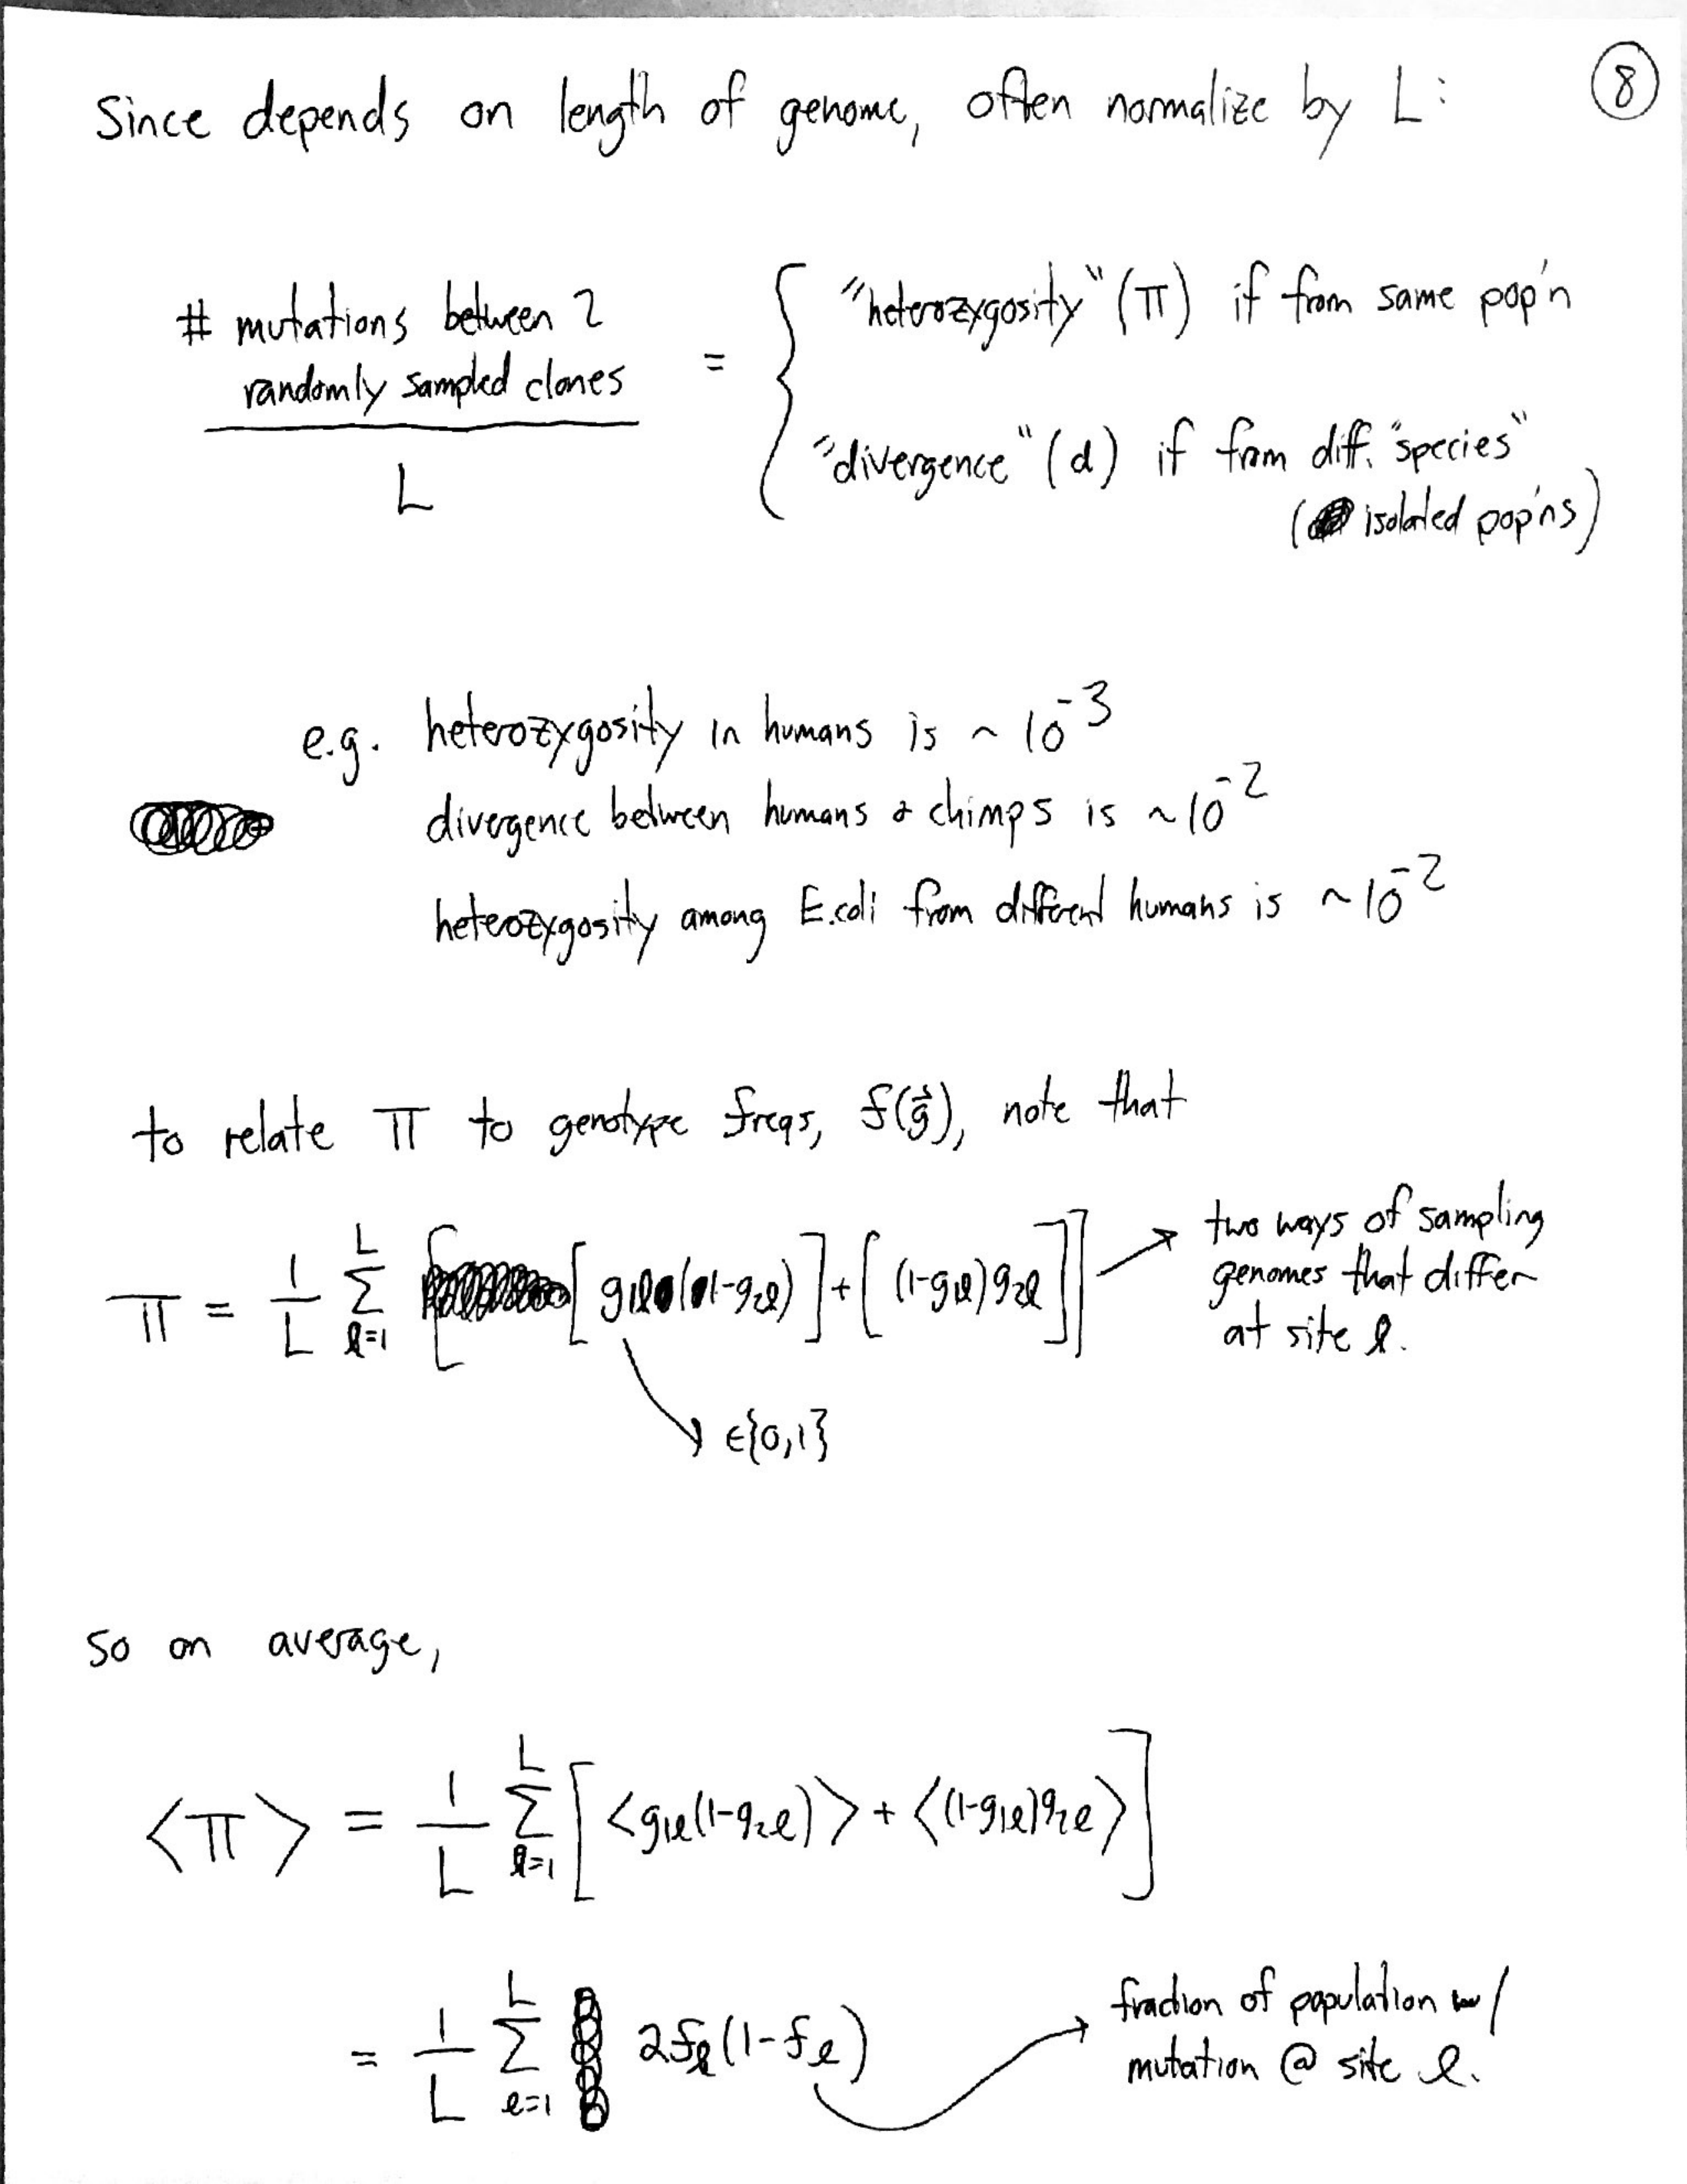 Since depends on length of genome, often normalize by L:
8
# mutations between 2
randomly sampled clones
L
=
"heterozygosity" (π) if from same pop'n
"divergence" (d) if from diff. "species"
(isolated pop'ns)
e.g. heterozygosity in humans is ~ 10⁻³
divergence between humans & chimps is ~10⁻²
heterozygosity among E.coli from different humans is ~10⁻²
to relate π to genotype freqs, f(g⃗), note that
π = 1/L Σ_{ℓ=1}^{L} [[g₁ℓ(1-g₂ℓ)] + [(1-g₁ℓ)g₂ℓ]]
two ways of sampling
genomes that differ
at site ℓ.
∈{0,1}
so on average,
⟨π⟩ = 1/L Σ_{ℓ=1}^{L} [⟨g₁ℓ(1-g₂ℓ)⟩ + ⟨(1-g₁ℓ)g₂ℓ⟩]
= 1/L Σ_{ℓ=1}^{L} 2fℓ(1-fℓ)
fraction of population w/
mutation @ site ℓ.